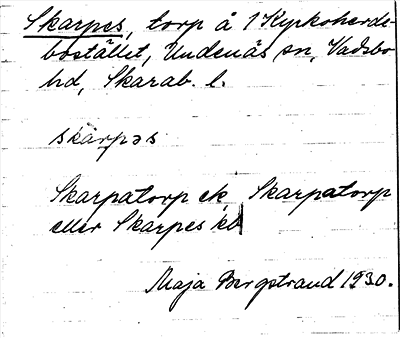 Skarpes, torp å 1 Kyrkoherde-
bostället, Undenäs sn, Vadsbo
hd, Skarab. l.
skárpəs
Skarpatorp ek, Skarpatorp
eller Skarpes kb
Maja Bergstrand 1930.